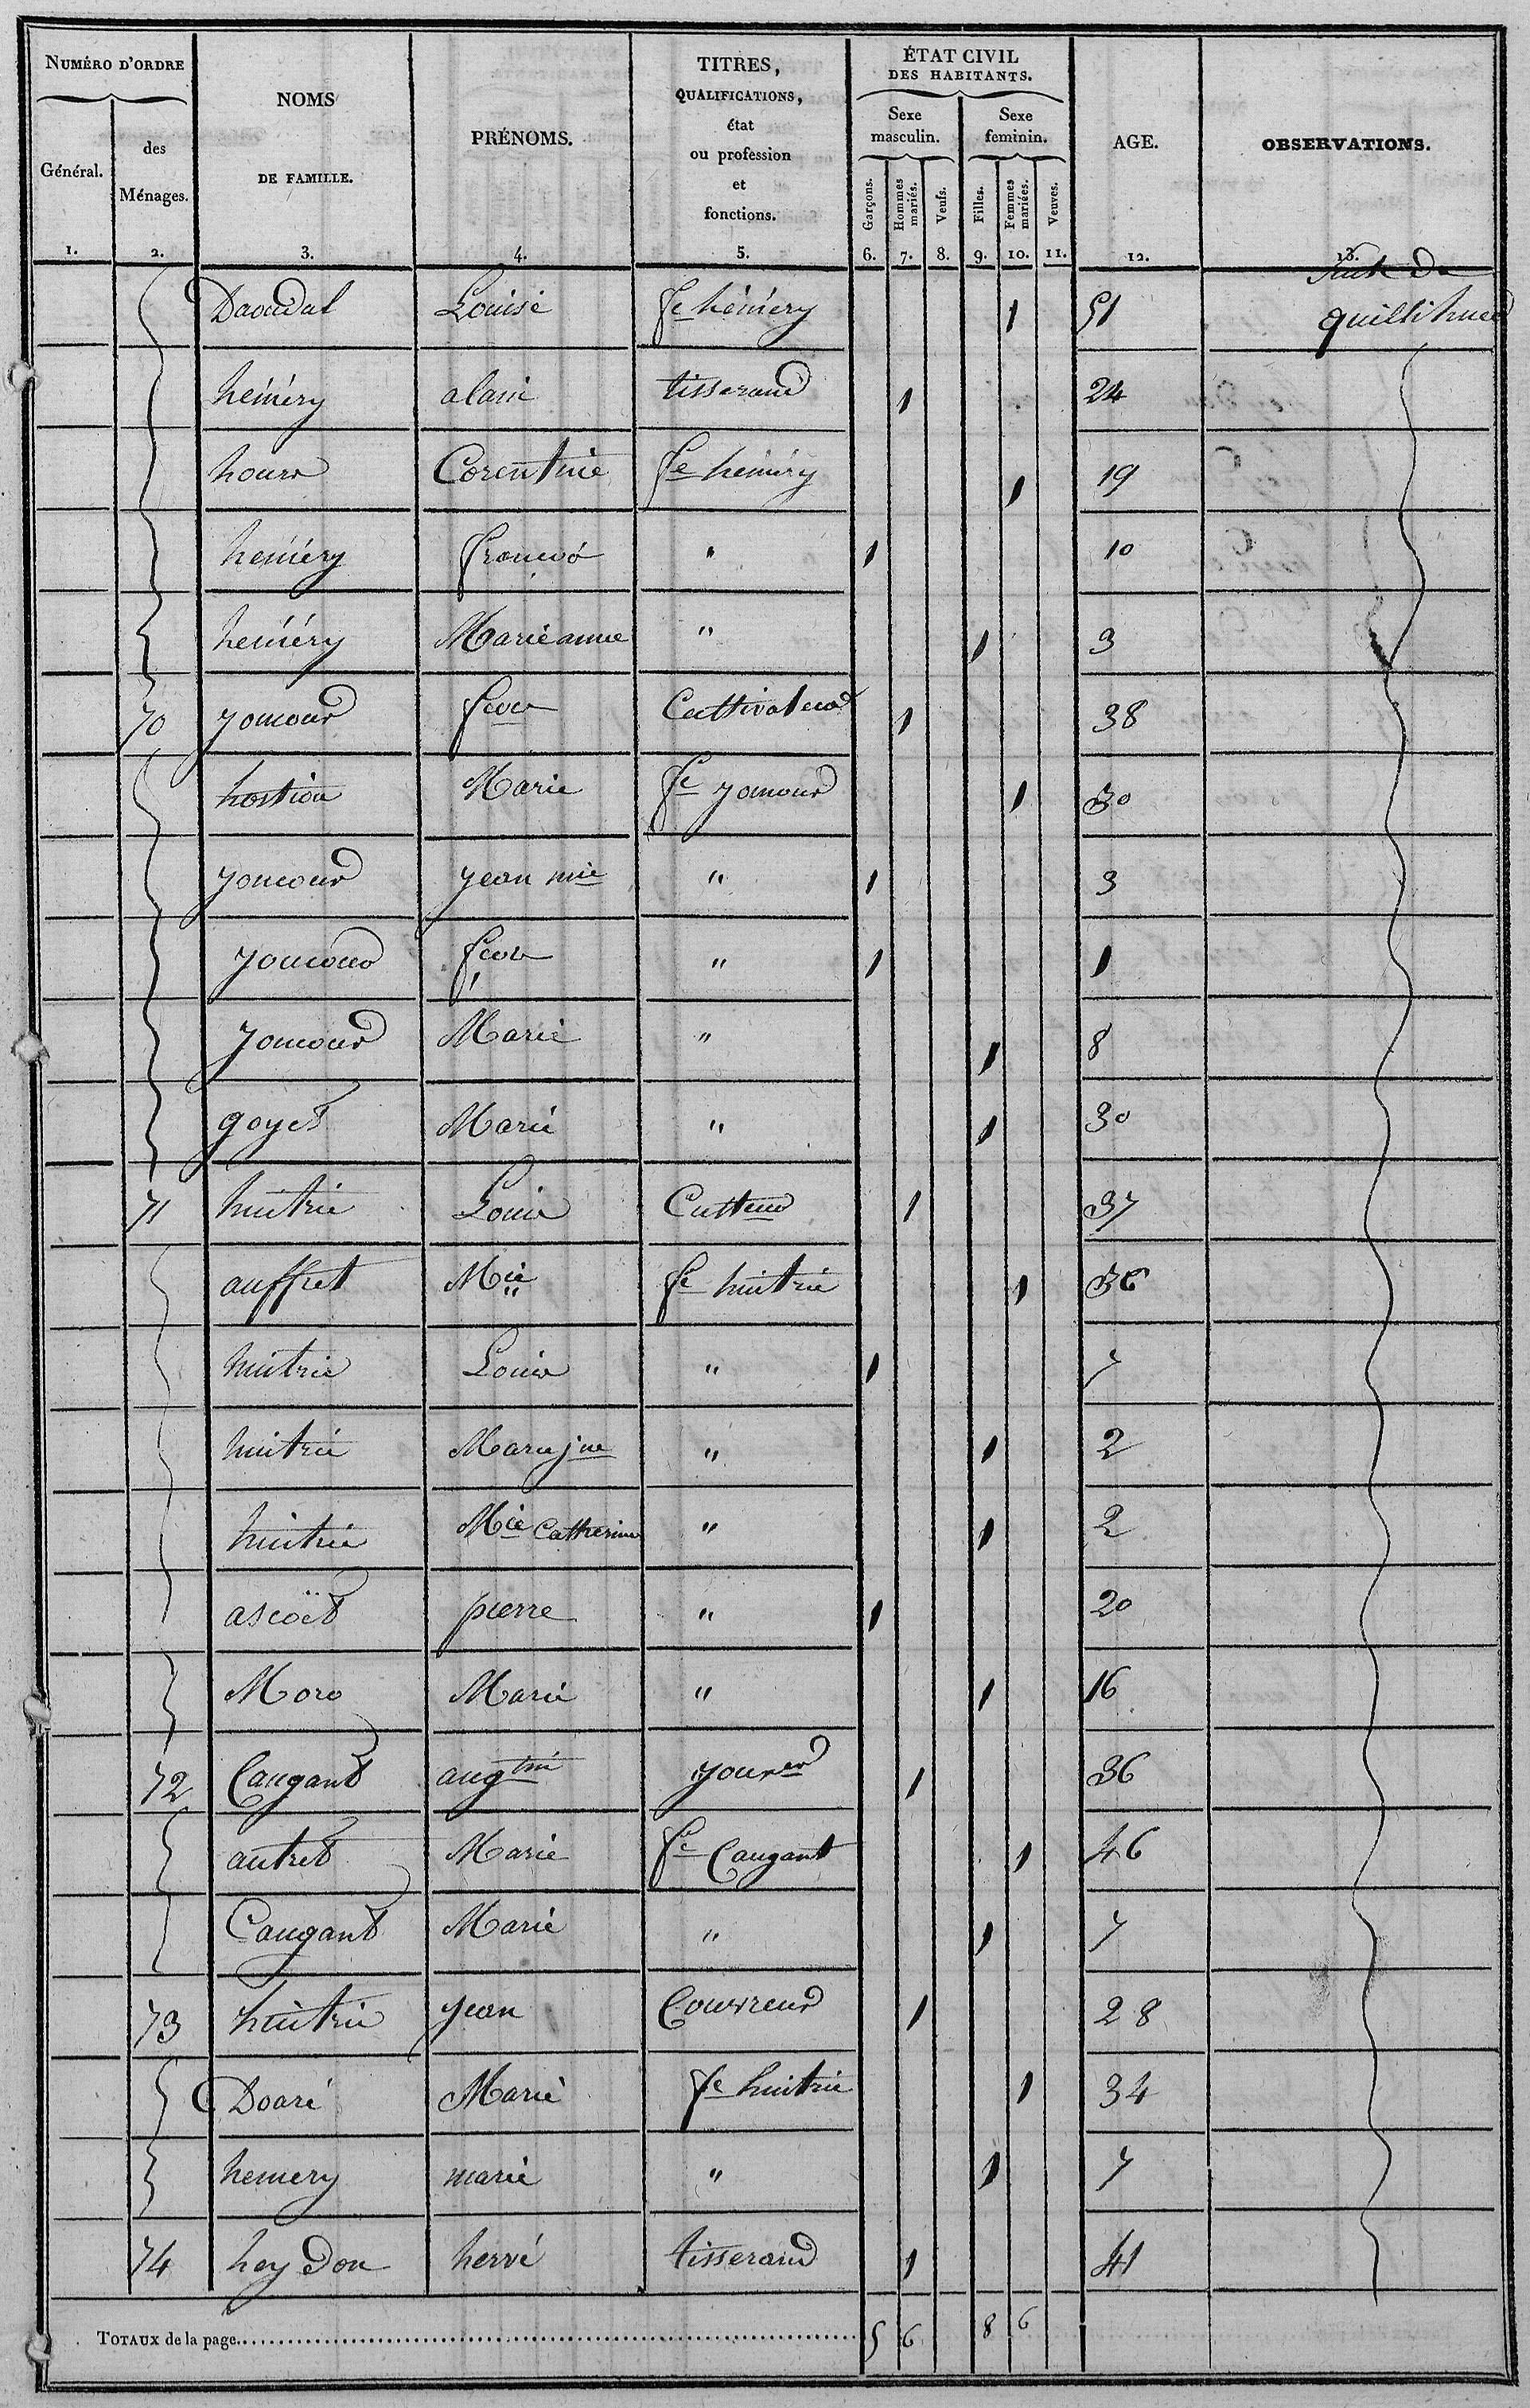 NUMÉRO D'ORDRE
Général.
des Ménages.
NOMS DE FAMILLE.
PRÉNOMS.
TITRES, QUALIFICATIONS, état ou profession et fonctions.
ÉTAT CIVIL DES HABITANTS.
Sexe masculin.
Sexe feminin.
Garçons.
Hommes mariés.
Veufs.
Filles.
Femmes mariées.
Veuves.
AGE.
OBSERVATIONS.
1. 2. 3. 4. 5. 6. 7. 8. 9. 10. 11. 12. 13.
Suite de
Daoudal Louise fe héméry 1 51
héméry alain tisserand 1 24
Corentine fe héméry 1 19
héméry françois " 1 10
héméry Marieanne " 1 3
70 youcour Cultivateur 1 38
hostiou Marie fe youcour 1 30
youcour jean mie " 1 3
youcour " 1 1
youcour Marie " 1 8
goyet Marie " 1 30
71 huitrie Louis Culteur 1 37
auffret Mie fe huitrie 1 36
huitrie Louis " 1 7
huitrie Marie jne " 1 2
huitrie Mie Catherine " 1 2
ascoët pierre " 1 20
Moro Marie " 1 16
72 Caugant augtin jourer 1 36
autret Marie fe Caugant 1 46
Caugant Marie " 1 7
73 huitrie jean Couvreur 1 28
Doaré Marie fe huitrie 1 34
hemery marie " 1 7
74 heydon hervé tisserand 1 41
TOTAUX de la page 5 6 8 6